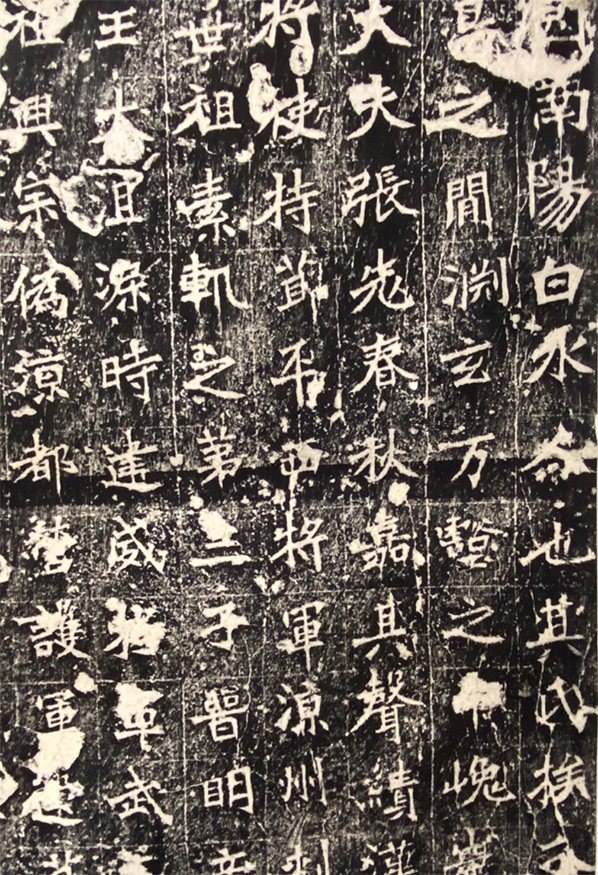 南陽白水人也其氏族
之間淵玄万壑之中巍
大夫張老春秋嘉其聲績漢
將使持節平西將軍涼州刺
世祖素軌之第三子晉明
王大沮渠時建威將軍武
祖興宗偽涼都營護軍建